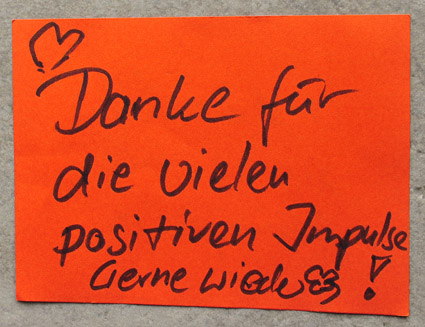 Danke für
die vielen
positiven Impulse
Gerne wieder !